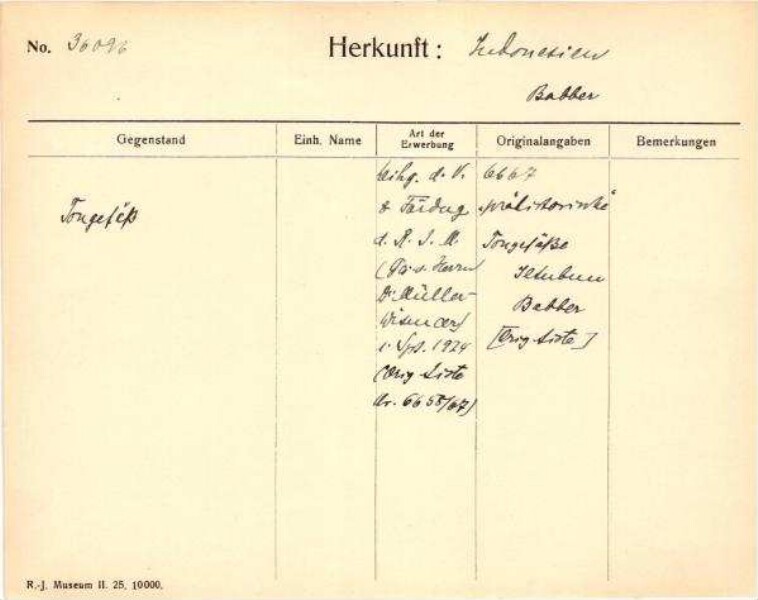 No. 36096 Herkunft: Indonesien
Babber
Gegenstand
Einh. Name
Art der
Erwerbung
Originalangaben
Bemerkungen
Tongefäß
Leihg. d. V.
z. Fördug
d. R. J. M.
Herrn
Dr Müller-
Wismar)
i. Spt. 1924
(Orig Liste
Nr. 6658/67)
6667
„prähistorische"
Tongefäße
Babber
[Orig. Liste]
R.-J. Museum II. 25. 10000.